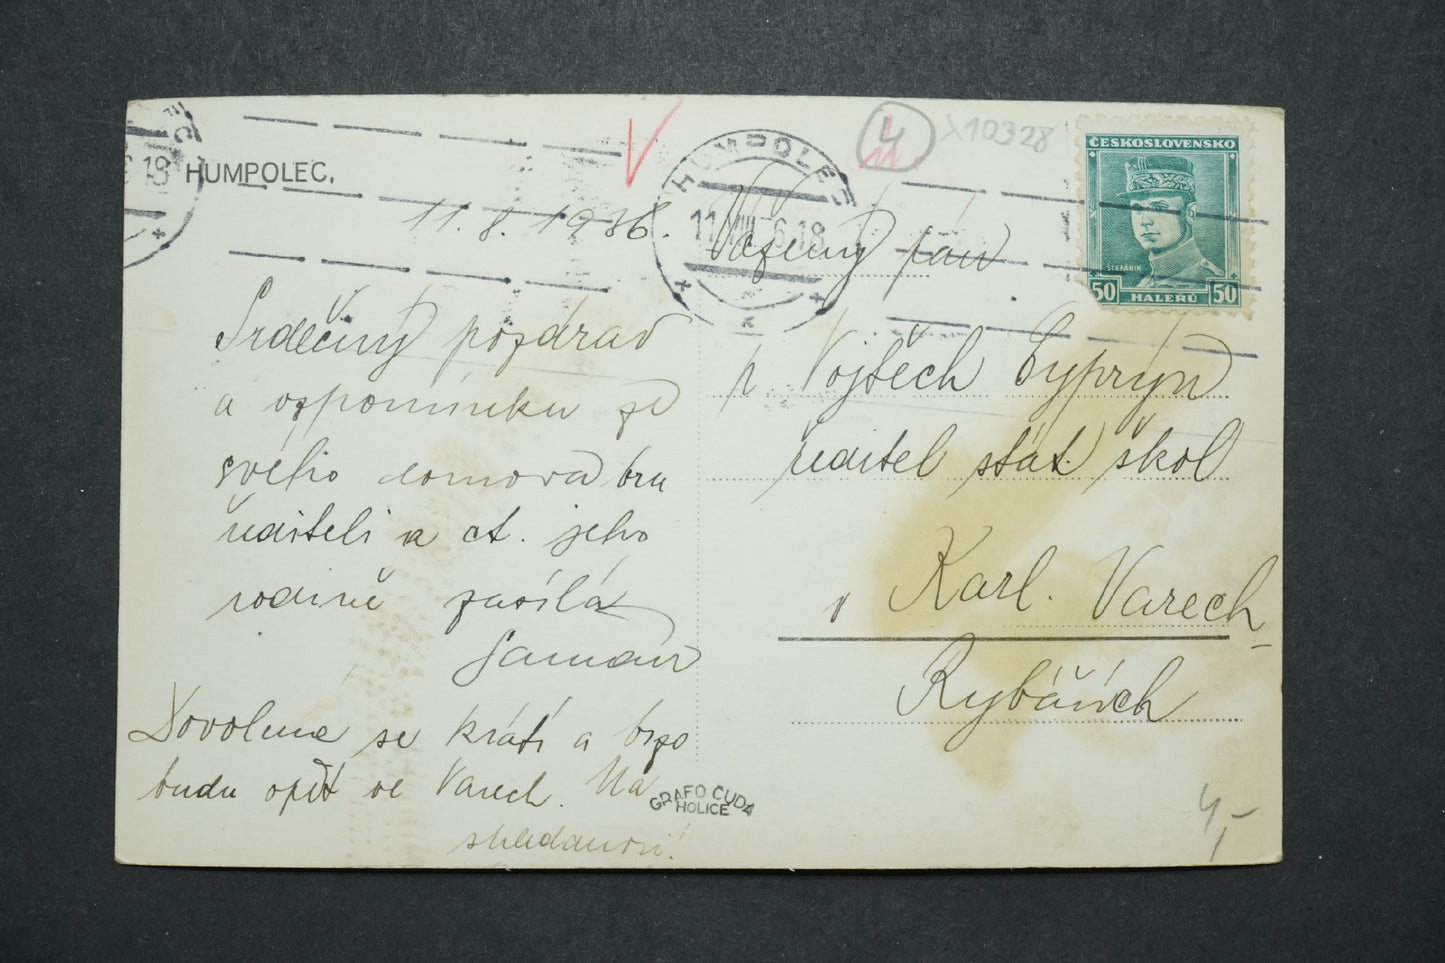 HUMPOLEC.
11. 8. 1936.
HUMPOLEC
11.VIII 36.18
4
λ10328
ČESKOSLOVENSKO
ŠTEFÁNIK
50 HALÉŘŮ 50
Srdečný pozdrav
a vzpomínku ze
svého domova bru
řediteli a ct. jeho
rodině zasílá
Dovolená se krátí a brzo
budu opět ve Varech. Na
shledanou!
GRAFO ČUDA
HOLICE
Vážený pán
p Vojtěch Cyprýn
ředitel stát. škol
v Karl. Varech-
Rybářích
4,-